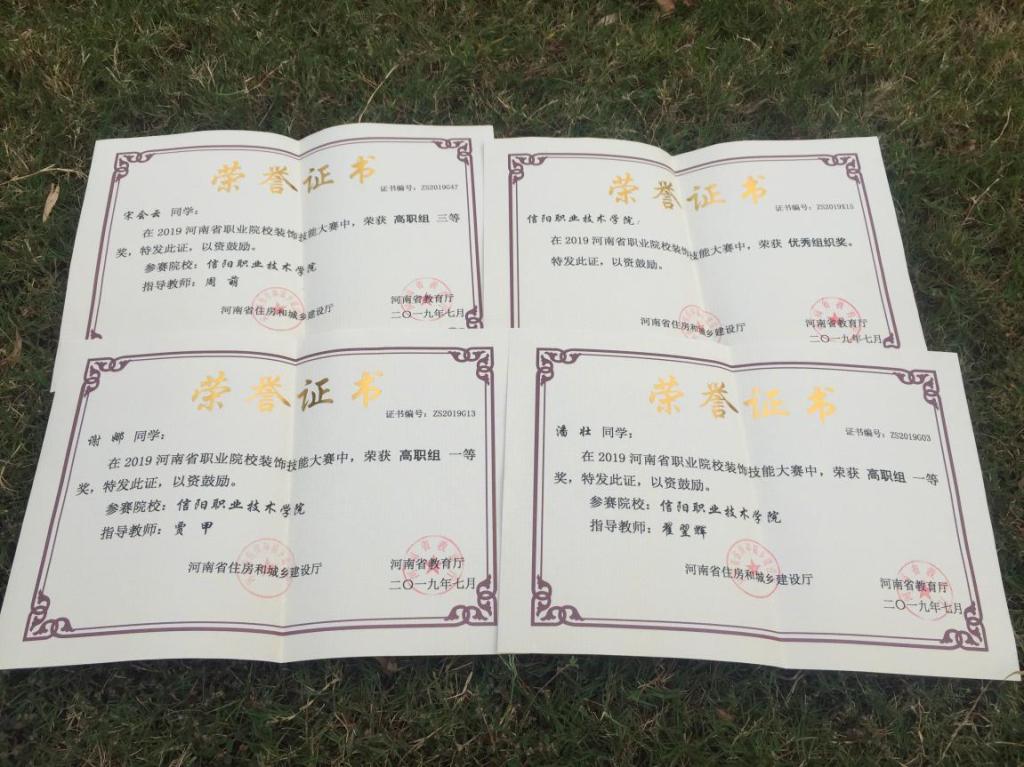 荣誉证书
证书编号：ZS2019G47
宋会云 同学：
在 2019 河南省职业院校装饰技能大赛中，荣获 高职组 三等
奖，特发此证，以资鼓励。
参赛院校：信阳职业技术学院
指导教师：周 萌
河南省住房和城乡建设厅
河南省教育厅
二〇一九年七月
荣誉证书
证书编号：ZS2019X15
信阳职业技术学院：
在 2019 河南省职业院校装饰技能大赛中，荣获 优秀组织奖。
特发此证，以资鼓励。
河南省住房和城乡建设厅
河南省教育厅
二〇一九年七月
荣誉证书
证书编号：ZS2019G13
谢 娜 同学：
在 2019 河南省职业院校装饰技能大赛中，荣获 高职组 一等
奖，特发此证，以资鼓励。
参赛院校：信阳职业技术学院
指导教师：贾 甲
河南省住房和城乡建设厅
河南省教育厅
二〇一九年七月
荣誉证书
证书编号：ZS2019G03
潘 壮 同学：
在 2019 河南省职业院校装饰技能大赛中，荣获 高职组 一等
奖，特发此证，以资鼓励。
参赛院校：信阳职业技术学院
指导教师：翟望辉
河南省住房和城乡建设厅
河南省教育厅
二〇一九年七月